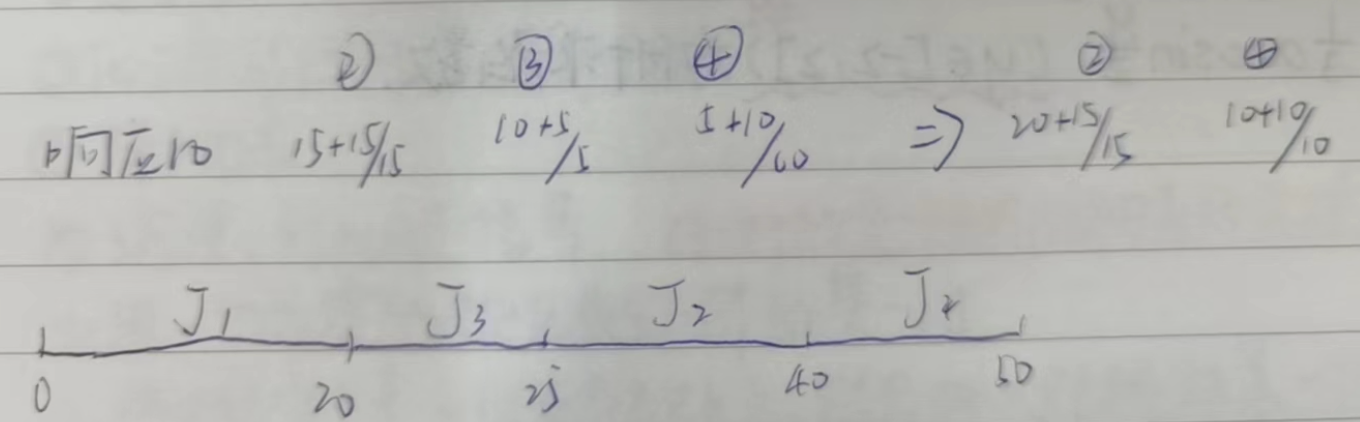 ② ③ ④ ② ④
响应比 15+15/15 10+5/5 5+10/10 => 20+15/15 10+10/10
J1 J3 J2 J4
0 20 25 40 50